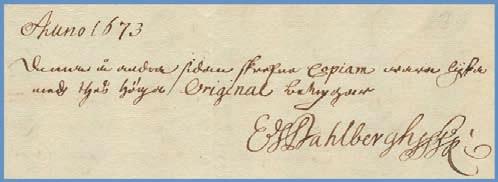 Anno 1673
Denna å andra sidan skrefne Copiam wara lijka
medh thes höga Original betygar
E Dahlbergh